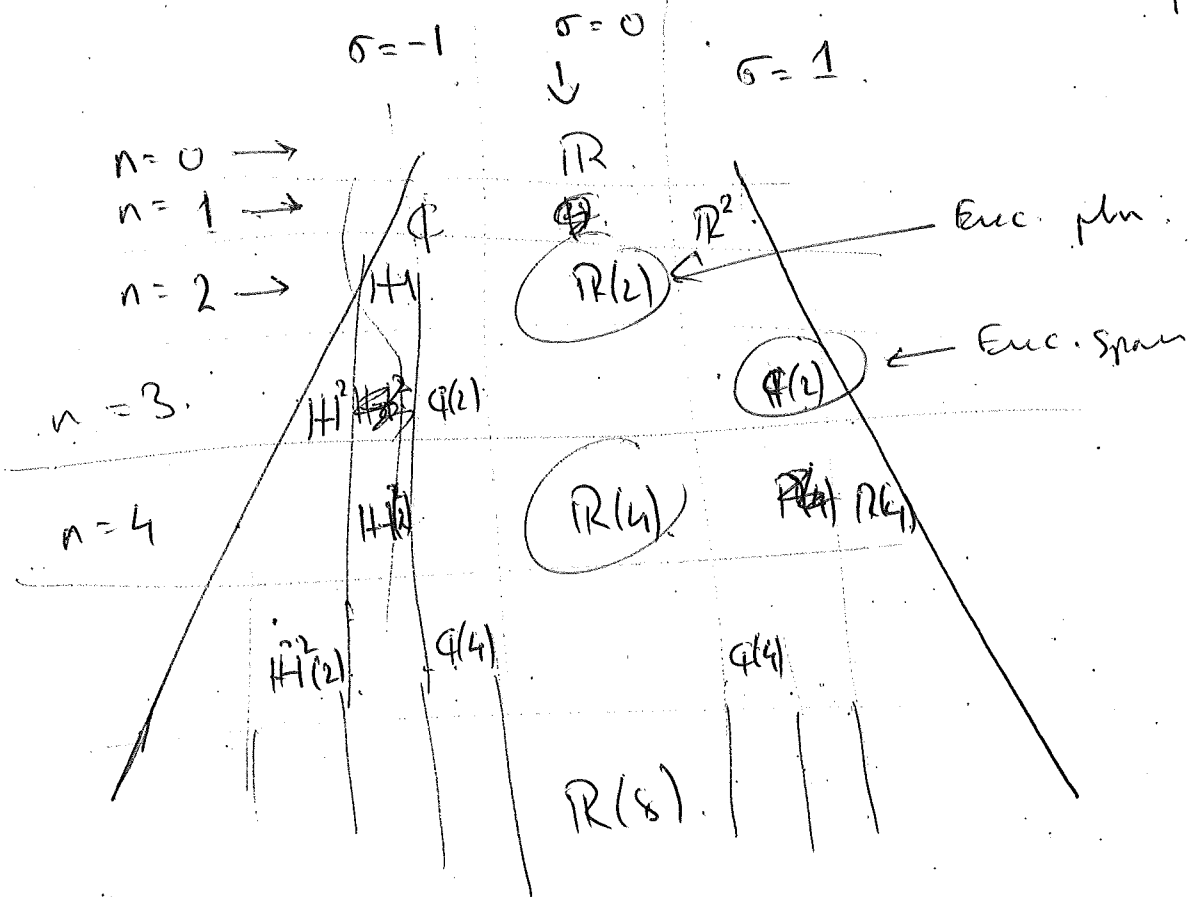 σ = -1 σ = 0 σ = 1
n = 0 → ℝ
n = 1 → ℂ ℝ² Euc. plan.
n = 2 → ℍ ℝ(2)
Euc. Space
n = 3. ℍ² ℂ(2) ℂ(2)
n = 4 ℍ(2) ℝ(4) ℝ(4)
ℍ²(2) ℂ(4) ℂ(4)
ℝ(8).